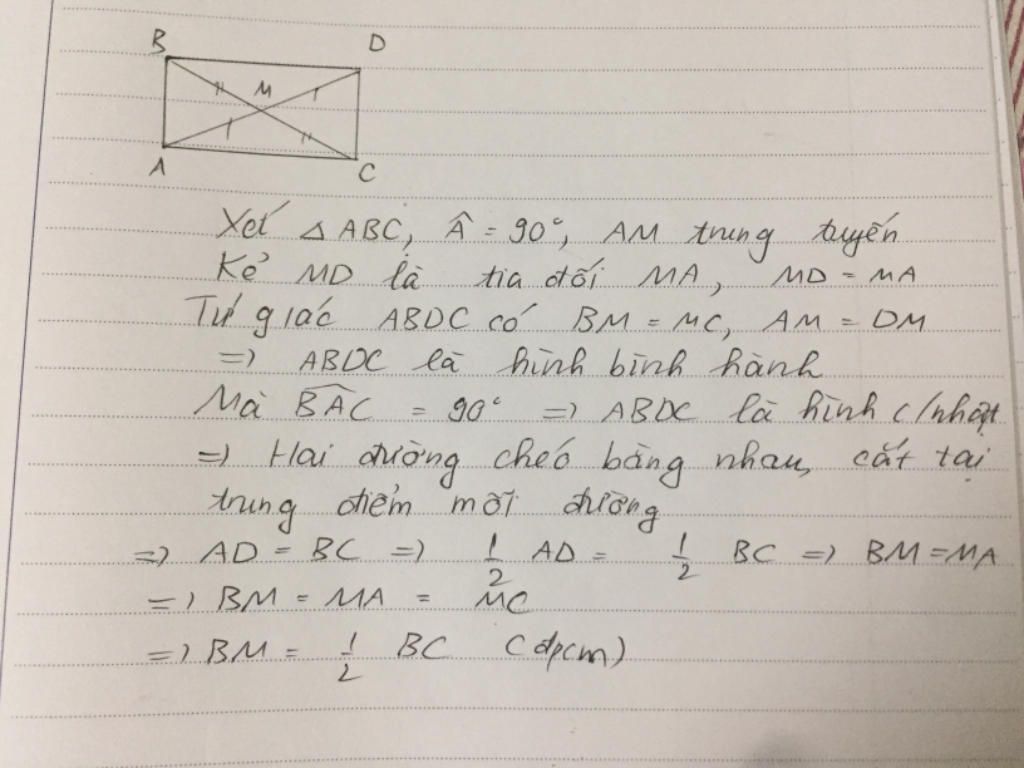 B
D
M
A
C
Xét △ABC, Â = 90°, AM trung tuyến
Kẻ MD là tia đối MA, MD = MA
Tứ giác ABDC có BM = MC, AM = DM
=> ABDC là hình bình hành
Mà BÂC = 90° => ABDC là hình c/nhật
=> Hai đường chéo bằng nhau, cắt tại
trung điểm mỗi đường
=> AD = BC => 1/2 AD = 1/2 BC => BM = MA
=> BM = MA = MC
=> BM = 1/2 BC (đpcm)